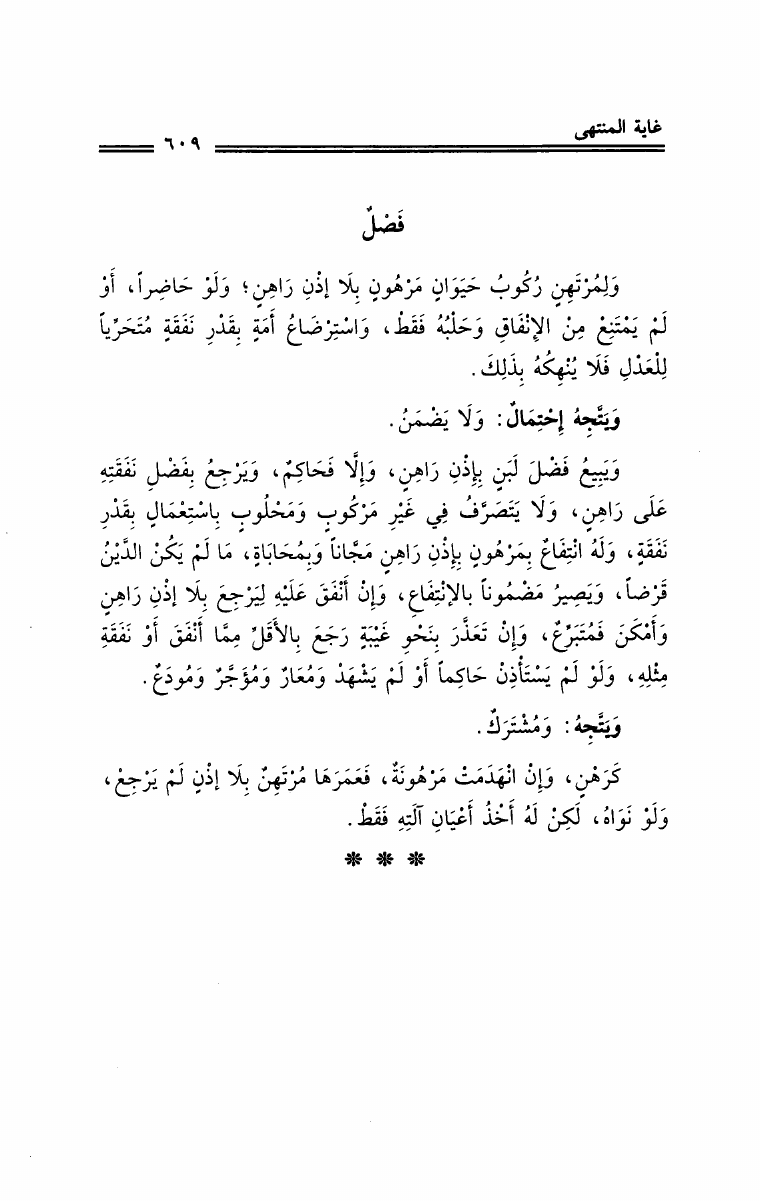 غاية المنتهى
٦٠٩
فَصْلٌ
وَلِمُرْتَهِنٍ رُكُوبُ حَيَوَانٍ مَرْهُونٍ بِلَا إذْنِ رَاهِنٍ؛ وَلَوْ حَاضِراً، أَوْ
لَمْ يَمْتَنِعْ مِنْ الإِنْفَاقِ وَحَلْبُهُ فَقَطْ، وَاسْتِرْضَاعُ أَمَةٍ بِقَدْرِ نَفَقَةٍ مُتَحَرِّياً
لِلْعَدْلِ فَلَا يُنْهِكُهُ بِذَلِكَ.
وَيَتَّجِهُ إحْتِمَالٌ: وَلَا يَضْمَنُ.
وَيَبِيعُ فَضْلَ لَبَنٍ بِإِذْنِ رَاهِنٍ، وَإِلَّا فَحَاكِمٌ، وَيَرْجِعُ بِفَضْلِ نَفَقَتِهِ
عَلَى رَاهِنٍ، وَلَا يَتَصَرَّفُ فِي غَيْرِ مَرْكُوبٍ وَمَحْلُوبٍ بِاسْتِعْمَالٍ بِقَدْرِ
نَفَقَةٍ، وَلَهُ انْتِفَاعٌ بِمَرْهُونٍ بِإِذْنِ رَاهِنٍ مَجَّاناً وَبِمُحَابَاةٍ، مَا لَمْ يَكُنْ الدَّيْنُ
قَرْضاً، وَيَصِيرُ مَضْمُوناً بالإنْتِفَاعِ، وَإِنْ أَنْفَقَ عَلَيْهِ لِيَرْجِعَ بِلَا إذْنِ رَاهِنٍ
وَأَمْكَنَ فَمُتَبَرِّعٌ، وَإِنْ تَعَذَّرَ بِنَحْوِ غَيْبَةٍ رَجَعَ بِالأَقَلِّ مِمَّا أَنْفَقَ أَوْ نَفَقَةِ
مِثْلِهِ، وَلَوْ لَمْ يَسْتَأْذِنْ حَاكِماً أَوْ لَمْ يَشْهَدْ وَمُعَارٌ وَمُؤَجَّرٌ وَمُودَعٌ.
وَيَتَّجِهُ: وَمُشْتَرَكٌ.
كَرَهْنٍ، وَإِنْ انْهَدَمَتْ مَرْهُونَةٌ، فَعَمَرَهَا مُرْتَهِنٌ بِلَا إذْنٍ لَمْ يَرْجِعْ،
وَلَوْ نَوَاهُ، لَكِنْ لَهُ أَخْذُ أَعْيَانِ آلَتِهِ فَقَطْ.
* * *